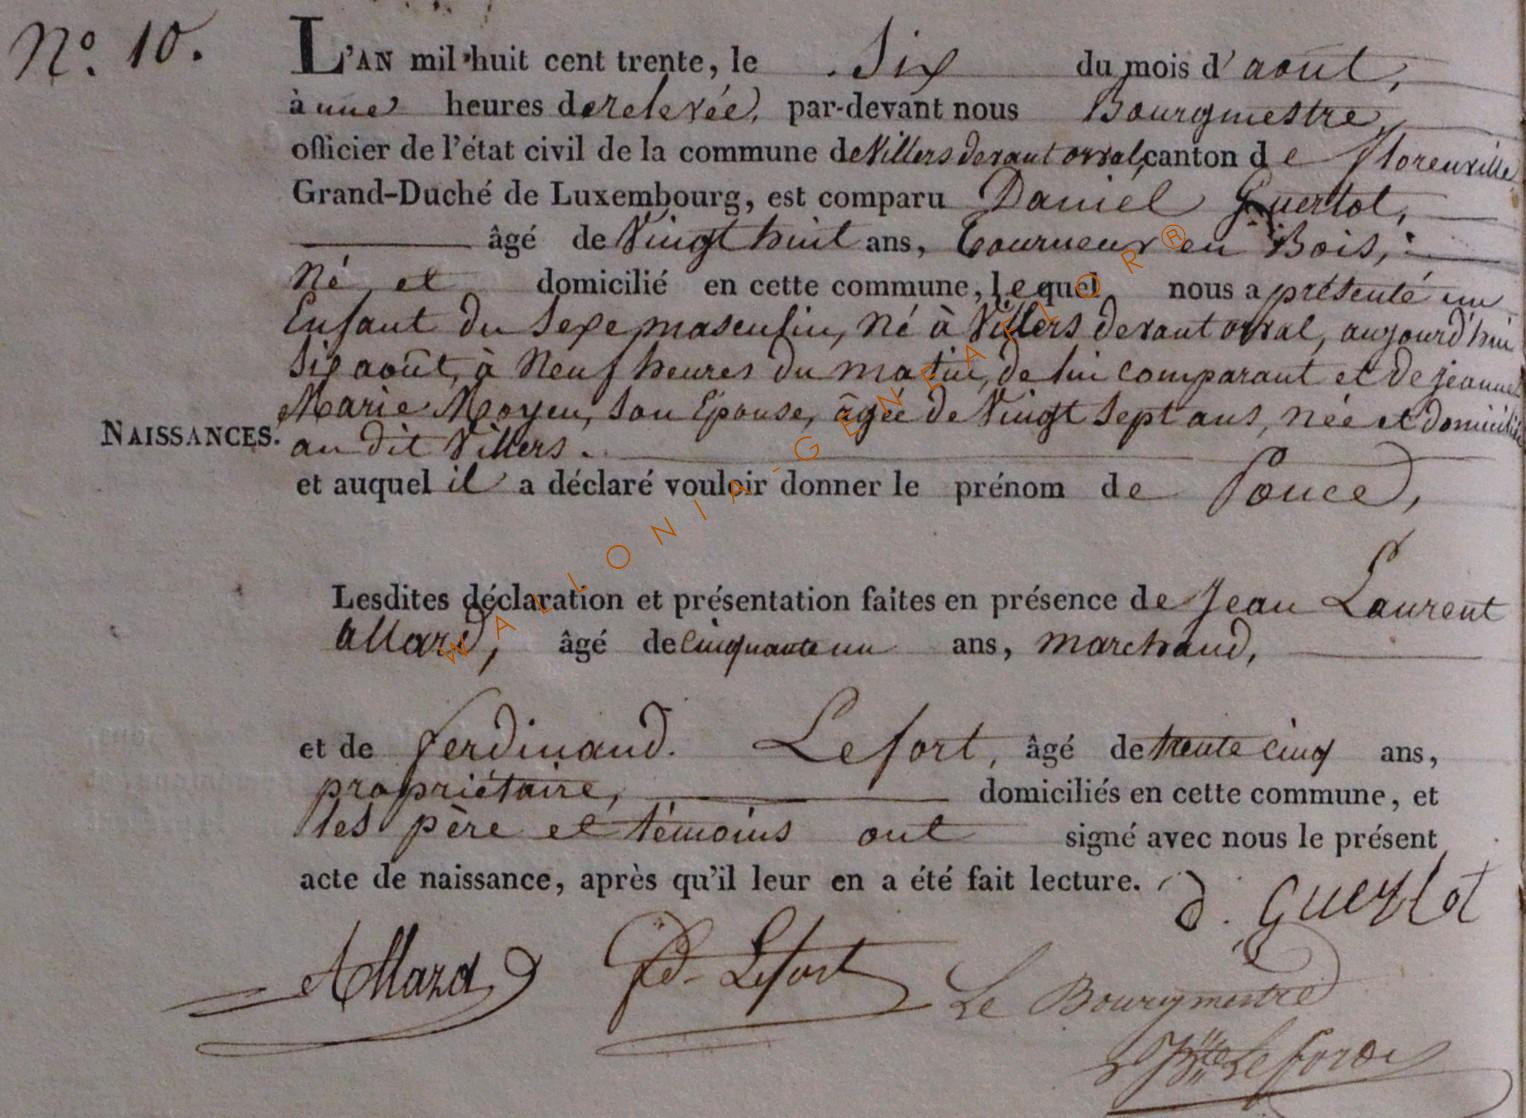 N.º 10.
L'AN mil huit cent trente, le Six du mois d'août,
à une heures de relevée, par-devant nous Bourgmestre,
officier de l'état civil de la commune de Villers devant orval, canton de florenville
Grand-Duché de Luxembourg, est comparu Daniel Guerlot,
âgé de Vingt huit ans, Tourneur en Bois,
Né et domicilié en cette commune, lequel nous a présenté un
Enfant du Sexe masculin, Né à Villers devant orval, aujourd'hui
Six août, à Neuf heures du matin, de lui comparant et de jeanne
Marie Moyen, son Epouse, âgée de Vingt sept ans, née et domiciliée
NAISSANCES.
au dit Villers.
et auquel il a déclaré vouloir donner le prénom de Ponce,
Lesdites déclaration et présentation faites en présence de Jean Laurent
allard, âgé de cinquante un ans, marchand,
et de ferdinand. Lefort, âgé de trente cinq ans,
propriétaire, domiciliés en cette commune, et
les père et témoins ont signé avec nous le présent
acte de naissance, après qu'il leur en a été fait lecture.
d. guerlot
Allard
fd. Lefort
Le Bourgmestre
WALLONIA-GENEALOR®